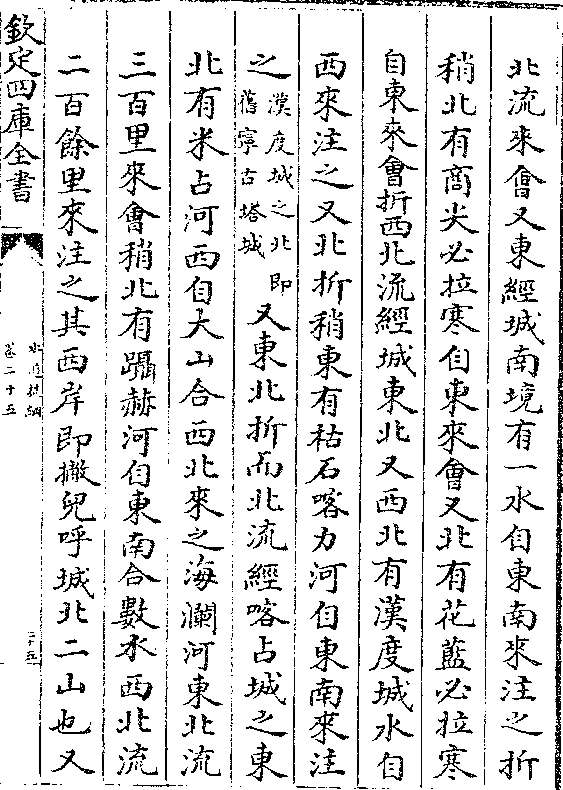 北流來會又東經城南境有一水自東南來注之折
稍北有商尖必拉寒自東來會又北有花藍必拉寒
自東來會折西北流經城東北又西北有漢度城水自
西來注之又北折稍東有祜石喀力河自東南來注
之漢度城之北即舊寧古塔城又東北折而北流經喀占城之東
北有米占河西自大山合西北來之海瀾河東北流
三百里來會稍北有躡赫河自東南合數水西北流
二百餘里來注之其西岸即撇兒呼城北二山也又
欽定四庫全書
水道提綱
卷二十五
二十五